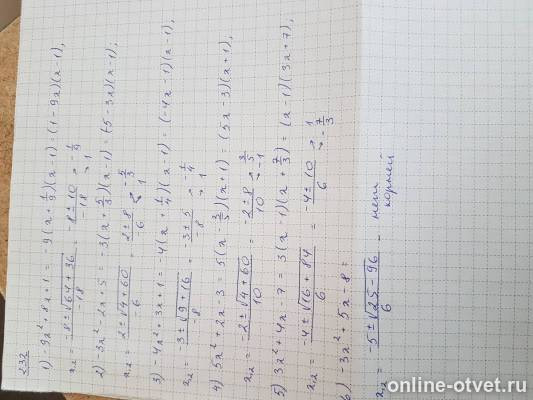 232
1) -9x² + 8x + 1 = -9(x + 1/9)(x - 1) = (1 - 9x)(x - 1),
x₁,₂ = (-8 ± √(64 + 36))/(-18) = (-8 ± 10)/(-18) → -1/9 → 1
2) -3x² - 2x + 5 = -3(x + 5/3)(x - 1) = (-5 - 3x)(x - 1),
x₁,₂ = (2 ± √(4 + 60))/(-6) = (2 ± 8)/(-6) → -5/3 → 1
3) -4x² + 3x + 1 = -4(x + 1/4)(x - 1) = (-4x - 1)(x - 1),
x₁,₂ = (-3 ± √(9 + 16))/(-8) = (-3 ± 5)/(-8) → -1/4 → 1
4) 5x² + 2x - 3 = 5(x - 3/5)(x + 1) = (5x - 3)(x + 1),
x₁,₂ = (-2 ± √(4 + 60))/10 = (-2 ± 8)/10 → 3/5 → -1
5) 3x² + 4x - 7 = 3(x - 1)(x + 7/3) = (x - 1)(3x + 7),
x₁,₂ = (-4 ± √(16 + 84))/6 = (-4 ± 10)/6 → 1 → -7/3
6) -3x² + 5x - 8 =
x₁,₂ = (-5 ± √(25 - 96))/6 - нет корней
online-otvet.ru